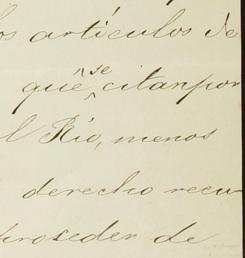 los artículos de
que se citan por
l Rio, menos
derecho recur
proseder de